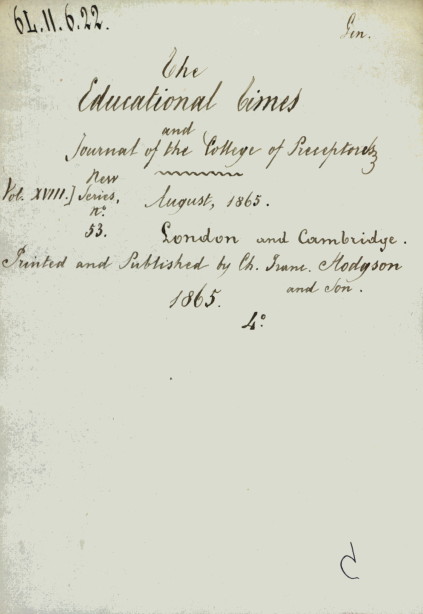 6L.11.6.22.
Gen.
The
Educational Times
and
Journal of the College of Preceptors
Vol. XVIII.] New Series, nº. 53. August, 1865.
London and Cambridge.
Printed and Published by Ch. Franc. Hodgson
and Son.
1865.
4º